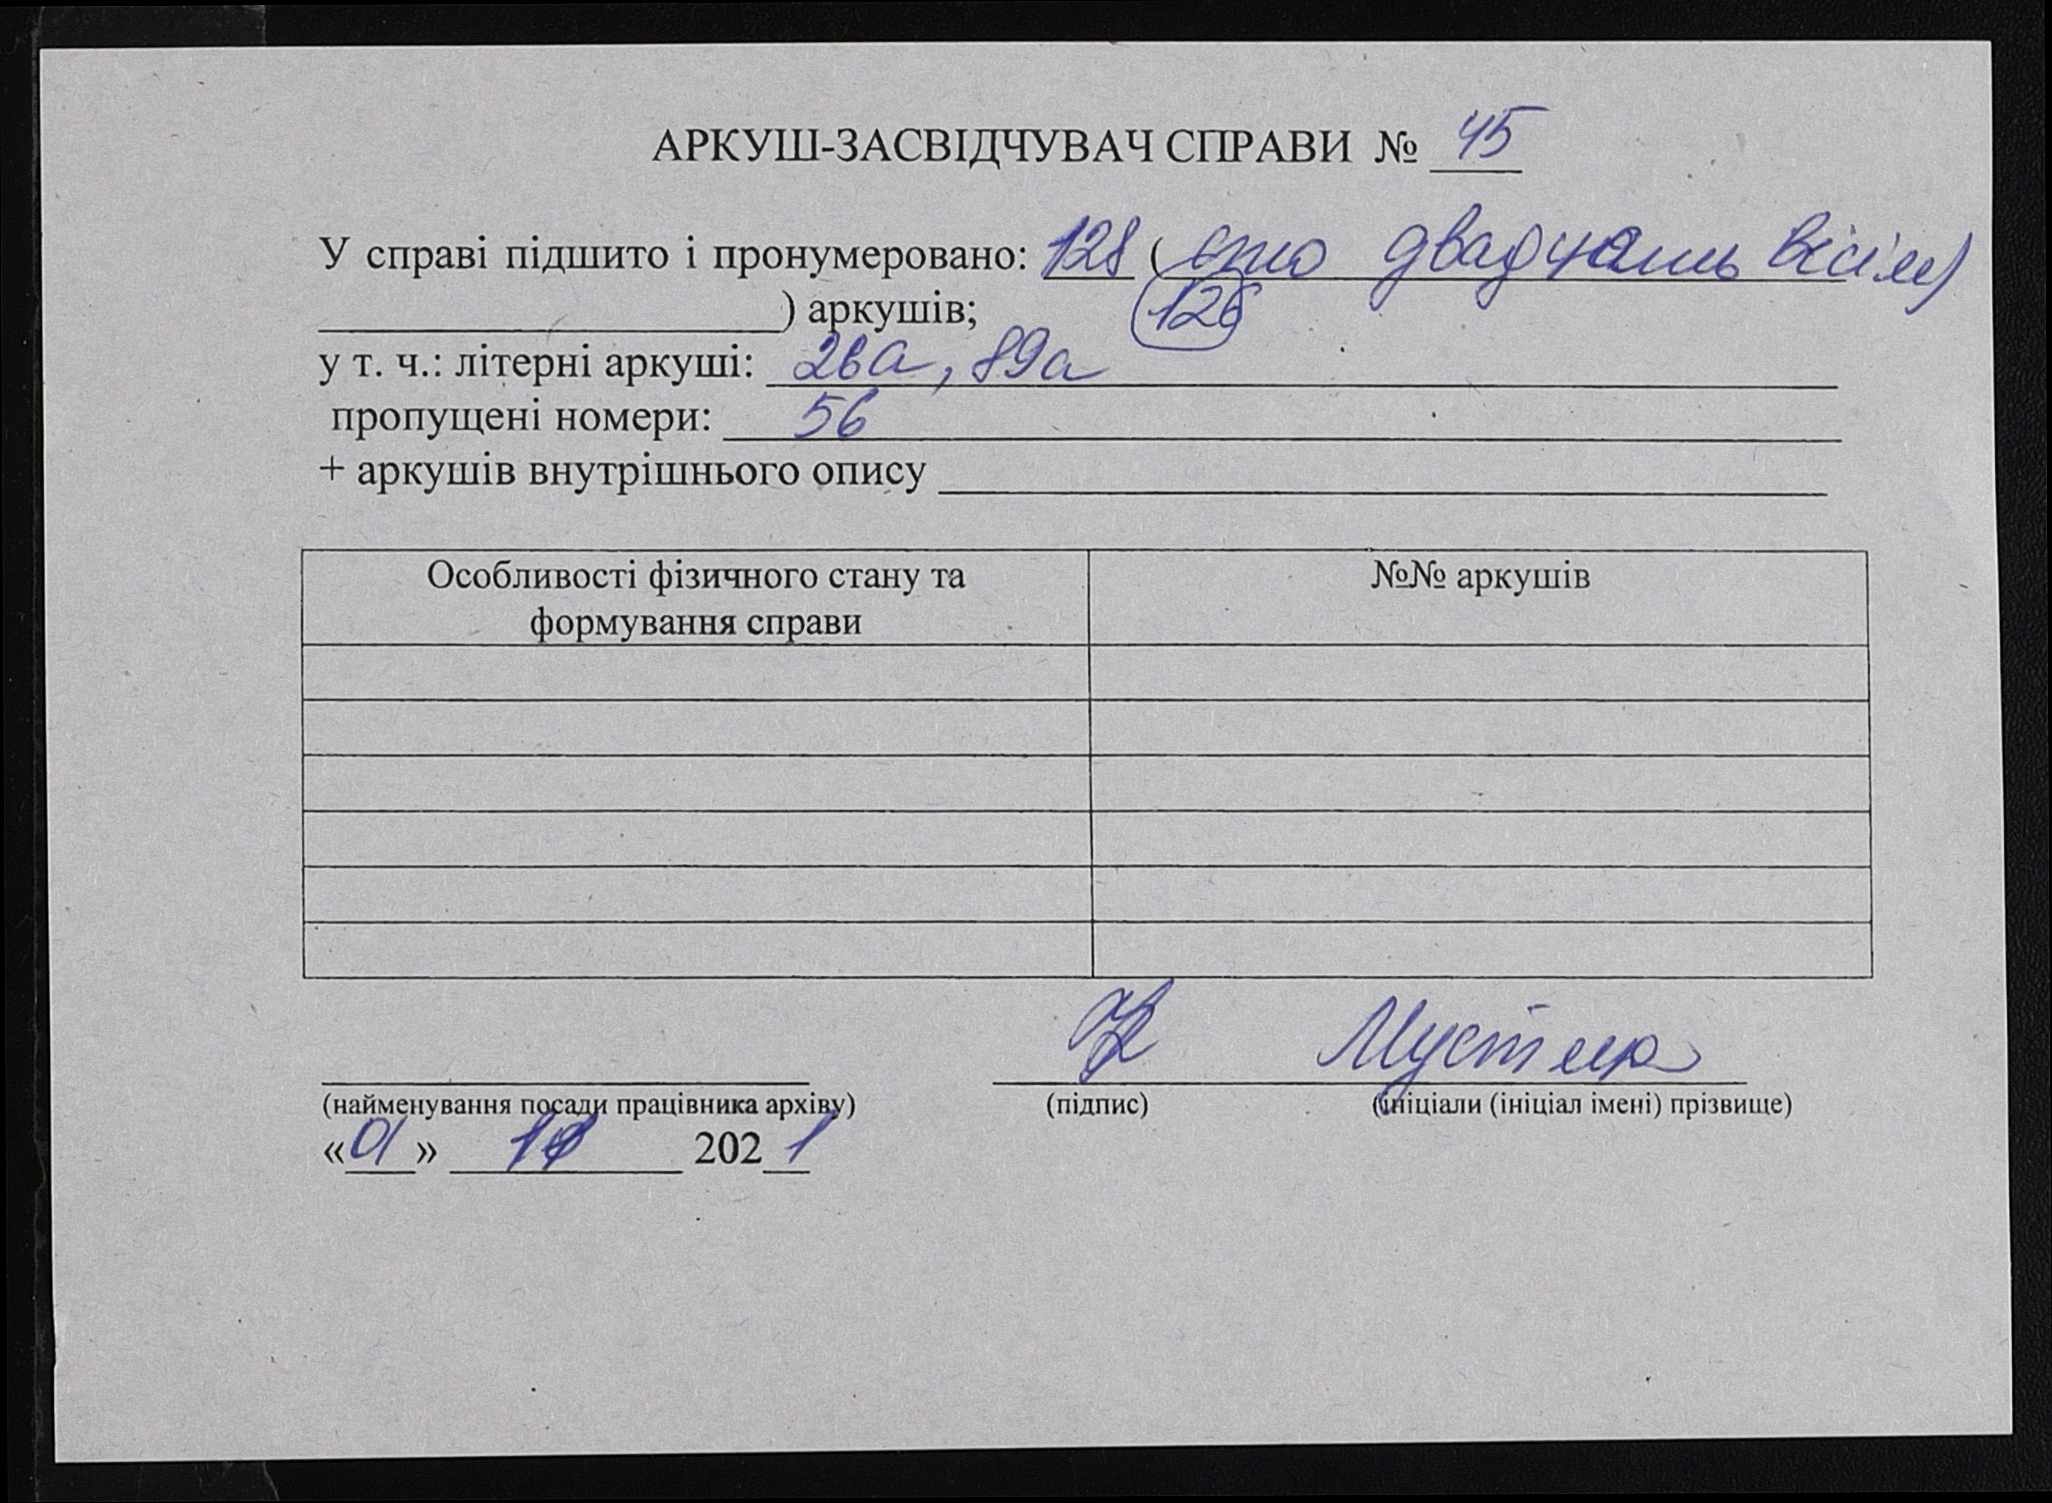 АРКУШ-ЗАСВІДЧУВАЧ СПРАВИ № 45
У справі підшито і пронумеровано: 128 ( сто двадцать вісім)
) аркушів;
у т. ч.: літерні аркуші: 26а, 89а
пропущені номери: 56
+ аркушів внутрішнього опису
Особливості фізичного стану та
формування справи
№№ аркушів
(найменування посади працівника архіву)
(підпис)
(ініціали (ініціал імені) прізвище)
«01» 11 2021